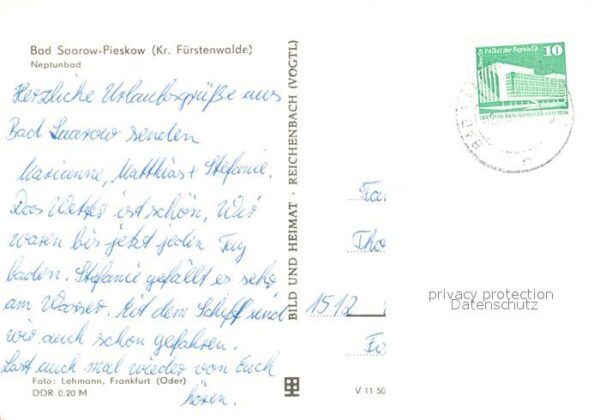 Bad Saarow-Pieskow (Kr. Fürstenwalde)
Neptunbad
Herzliche Urlaubsgrüße aus
Bad Saarow senden
Marianne, Matthias + Stefanie.
Das Wetter ist schön. Wir
waren bis jetzt jeden Tag
baden. Stefanie gefällt es sehr
am Wasser. Mit dem Schiff sind
wir auch schon gefahren.
Last auch mal wieder von Euch
hören.
Foto: Lehmann, Frankfurt (Oder)
DDR 0,20 M
BILD UND HEIMAT · REICHENBACH (VOGTL)
V 11 50
Berlin, Palast der Republik
10
Fam
Tho
1512
privacy protection
Datenschutz